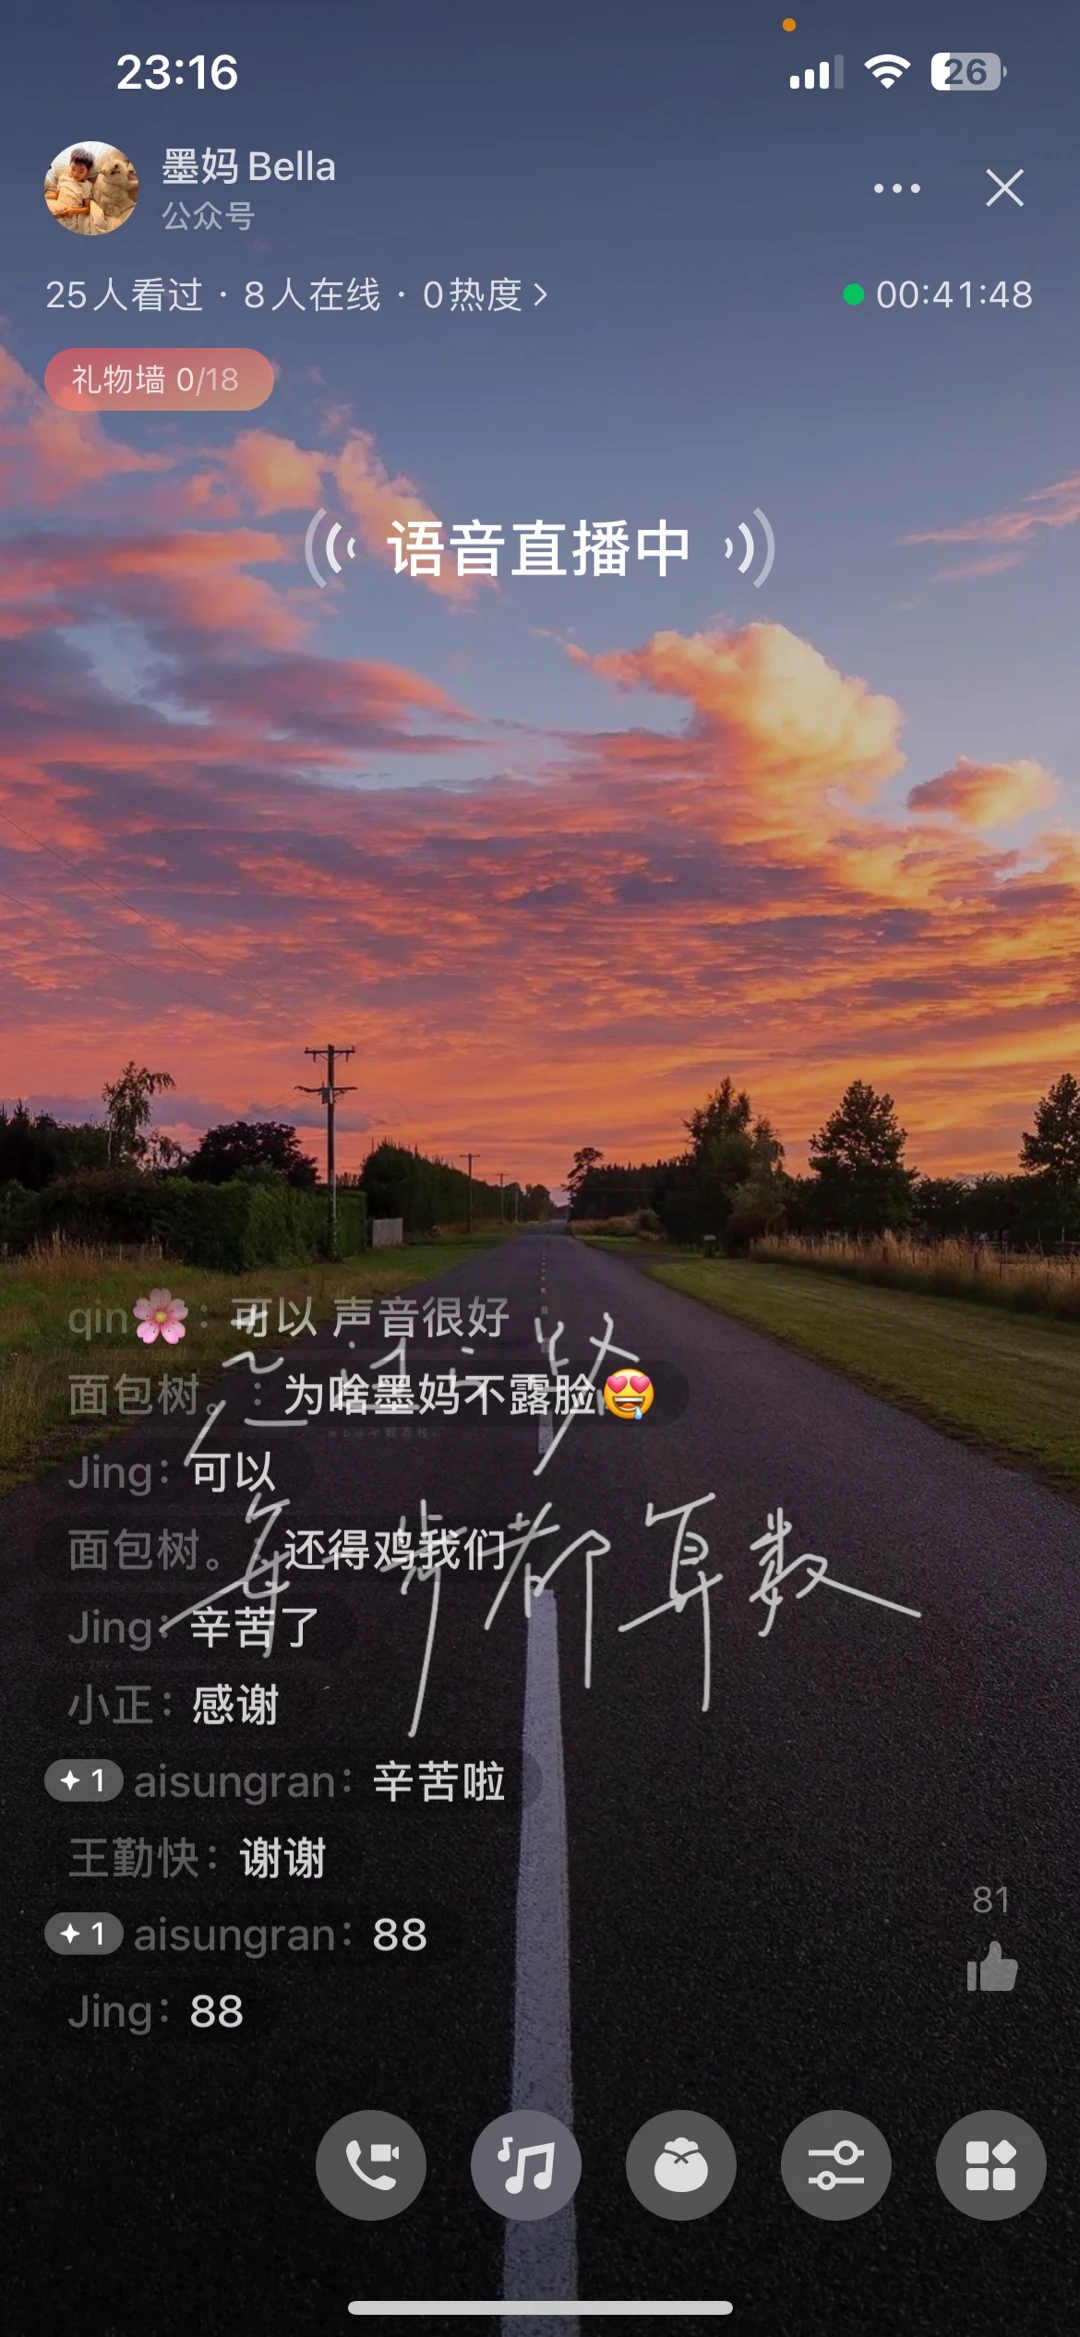 23:16
26
墨妈Bella
公众号
25人看过 · 8人在线 · 0热度 >
00:41:48
礼物墙 0/18
语音直播中
qin🌸：可以 声音很好
面包树。：为啥墨妈不露脸🤤
Jing：可以
面包树。：还得鸡我们
每一步都算数
Jing：辛苦了
小正：感谢
1 aisungran：辛苦啦
王勤快：谢谢
81
1 aisungran：88
Jing：88